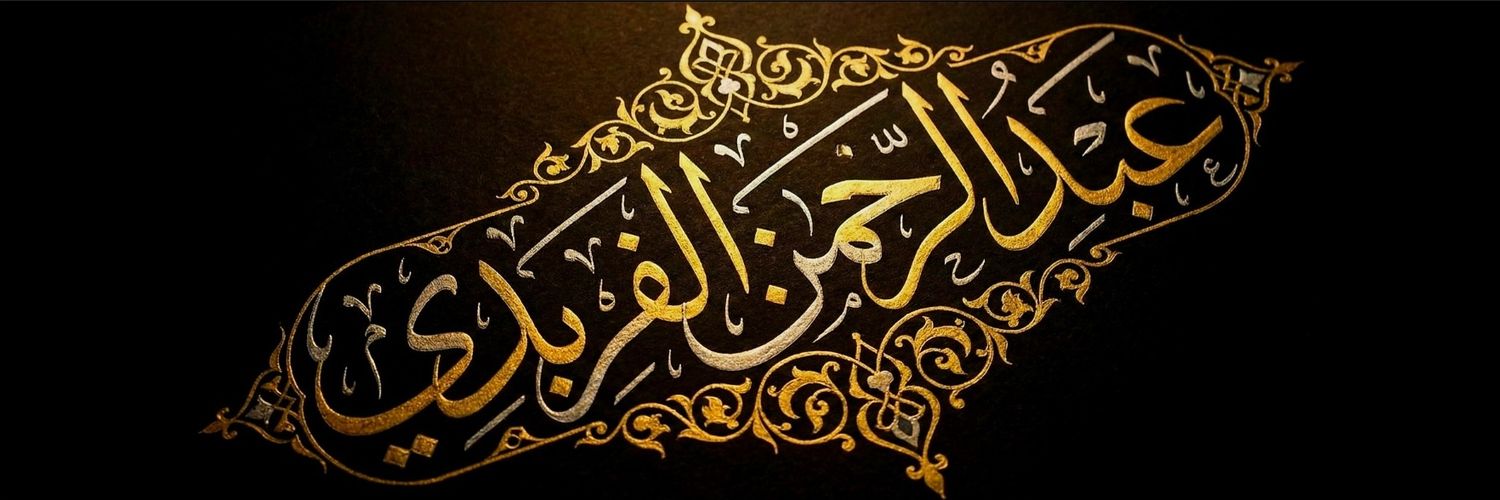 عبدُ الرّحمن الفريدي